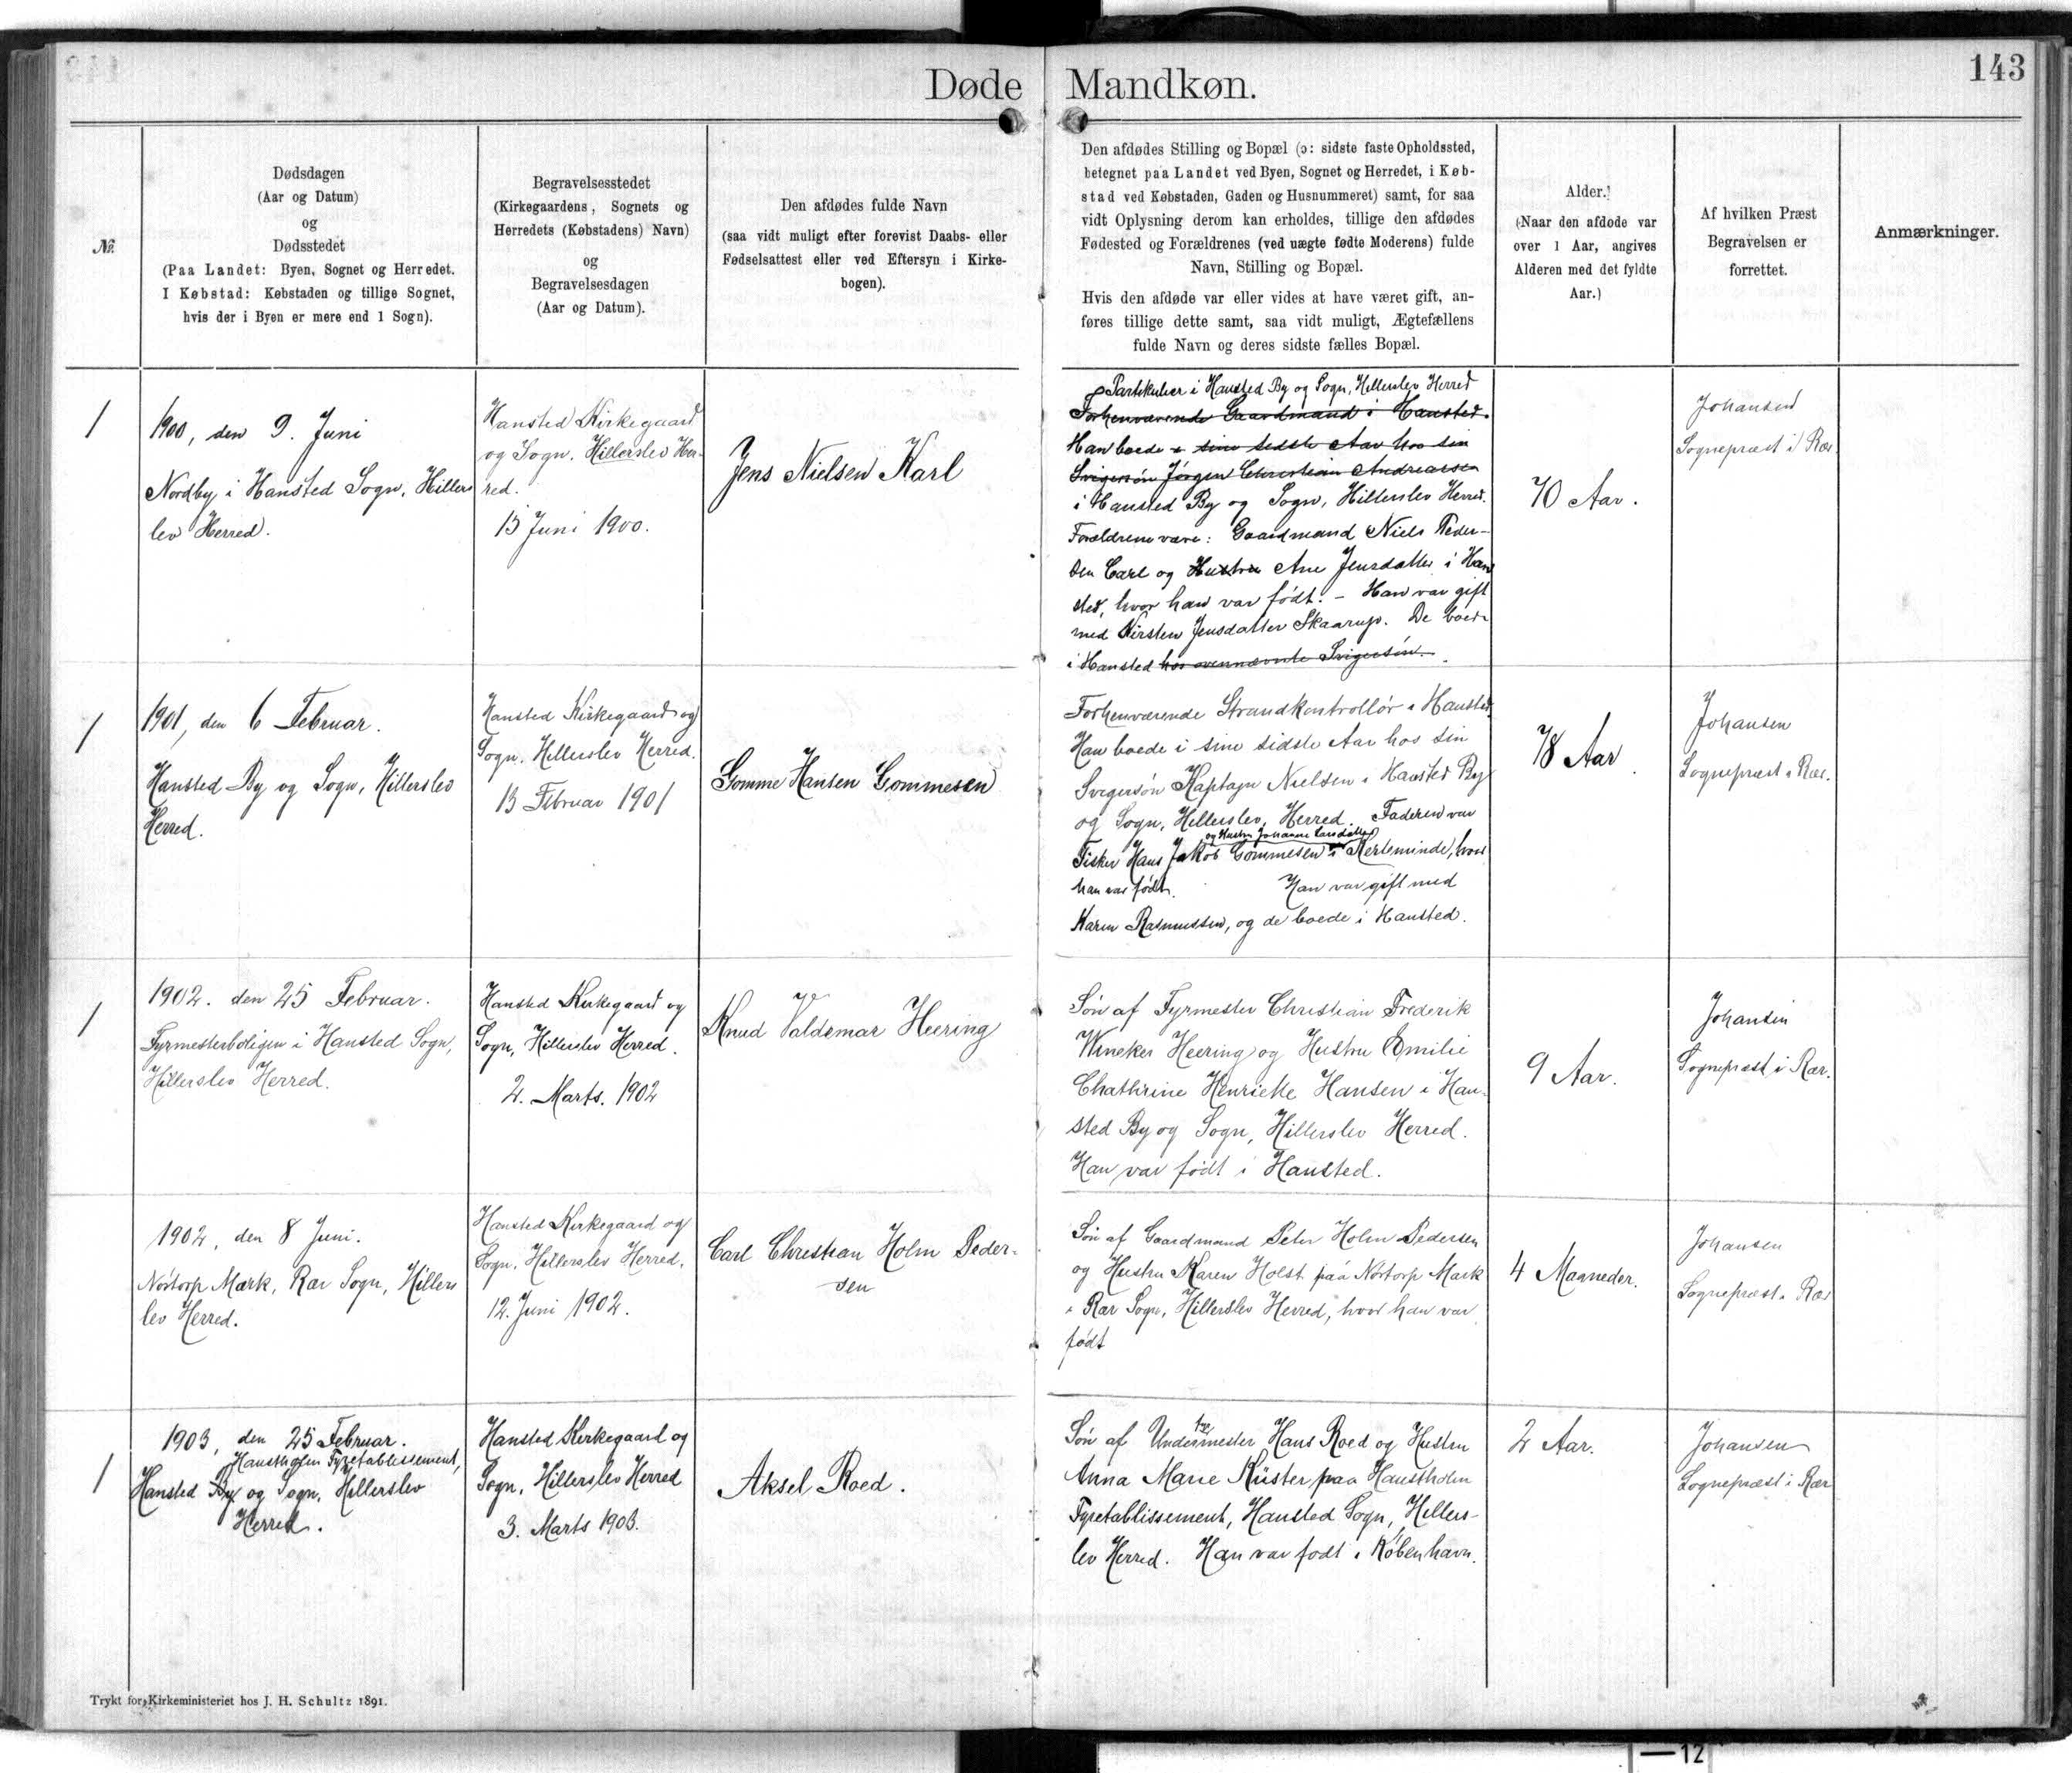 Døde Mandkøn.
143
№
Dødsdagen
(Aar og Datum)
og
Dødsstedet
(Paa Landet: Byen, Sognet og Herredet.
I Købstad: Købstaden og tillige Sognet,
hvis der i Byen er mere end 1 Sogn).
Begravelsesstedet
(Kirkegaardens, Sognets og
Herredets (Købstadens) Navn)
og
Begravelsesdagen
(Aar og Datum).
Den afdødes fulde Navn
(saa vidt muligt efter forevist Daabs- eller
Fødselsattest eller ved Eftersyn i Kirke-
bogen).
Den afdødes Stilling og Bopæl (ɔ: sidste faste Opholdssted,
betegnet paa Landet ved Byen, Sognet og Herredet, i Køb-
stad ved Købstaden, Gaden og Husnummeret) samt, for saa
vidt Oplysning derom kan erholdes, tillige den afdødes
Fødested og Forældrenes (ved uægte fødte Moderens) fulde
Navn, Stilling og Bopæl.
Hvis den afdøde var eller vides at have været gift, an-
føres tillige dette samt, saa vidt muligt, Ægtefællens
fulde Navn og deres sidste fælles Bopæl.
Alder.
(Naar den afdøde var
over 1 Aar, angives
Alderen med det fyldte
Aar.)
Af hvilken Præst
Begravelsen er
forrettet.
Anmærkninger.
1
1900, den 9. Juni
Nordby i Hansted Sogn, Hillers
lev Herred.
Hansted Kirkegaard
og Sogn, Hillerslev Her-
red.
15 Juni 1900.
Jens Nielsen Karl
Partikulier i Hansted By og Sogn, Hillerslev Herred
Forhenværende Gaardmand i Hansted.
Han boede i sine sidste Aar hos sin
Svigersøn Jørgen Christian Andreasen
i Hansted By og Sogn, Hillerslev Herred.
Forældrene vare: Gaardmand Niels Peder-
sen Carl og Hustru Ane Jensdatter i Han
sted, hvor han var født. - Han var gift
med Kirsten Jensdatter Skaarup. De boede
i Hansted hos ovennævnte Svigersøn.
70 Aar.
Johansen
Sognepræst i Rær.
1
1901, den 6 Februar.
Hansted By og Sogn, Hillerslev
Herred.
Hansted Kirkegaard og
Sogn, Hillerslev Herred.
13 Februar 1901
Gomme Hansen Gommesen
Forhenværende Strandkontrollør i Hansted.
Han boede i sine sidste Aar hos sin
Svigersøn Kaptajn Nielsen i Hansted By
og Sogn, Hillerslev Herred. Faderen var
og Hustru Johanne Larsdatter
Fisker Hans Jakob Gommesen i Kerteminde, hvor
han var født. Han var gift med
Karen Rasmussen, og de boede i Hansted.
78 Aar.
Johansen
Sognepræst i Rær.
1
1902. den 25 Februar.
Fyrmesterboligen i Hansted Sogn,
Hillerslev Herred.
Hansted Kirkegaard og
Sogn, Hillerslev Herred.
2. Marts. 1902
Knud Valdemar Heering
Søn af Fyrmester Christian Frederik
Wineker Heering og Hustru Emilie
Chathrine Henriette Hansen i Han-
sted By og Sogn, Hillerslev Herred.
Han var født i Hansted.
9 Aar.
Johansen
Sognepræst i Rær.
1902, den 8 Juni.
Nørtorp Mark, Rær Sogn, Hillers
lev Herred.
Hansted Kirkegaard og
Sogn, Hillerslev Herred.
12. Juni 1902.
Carl Christian Holm Peder-
sen
Søn af Gaardmand Peter Holm Pedersen
og Hustru Karen Holst paa Nørtorp Mark
i Rær Sogn, Hillerslev Herred, hvor han var
født
4 Maaneder.
Johansen
Sognepræst i Rær
1
1903, den 25 Februar.
Hanstholm Fyretablissement,
Hansted By og Sogn, Hillerslev
Herred.
Hansted Kirkegaard og
Sogn, Hillerslev Herred
3. Marts 1903.
Aksel Roed.
Søn af Underfyrmester Hans Roed og Hustru
Anna Marie Küster paa Hanstholm
Fyretablissement, Hansted Sogn, Hillers-
lev Herred. Han var født i København.
2 Aar.
Johansen
Sognepræst i Rær
Trykt for Kirkeministeriet hos J. H. Schultz 1891.
12